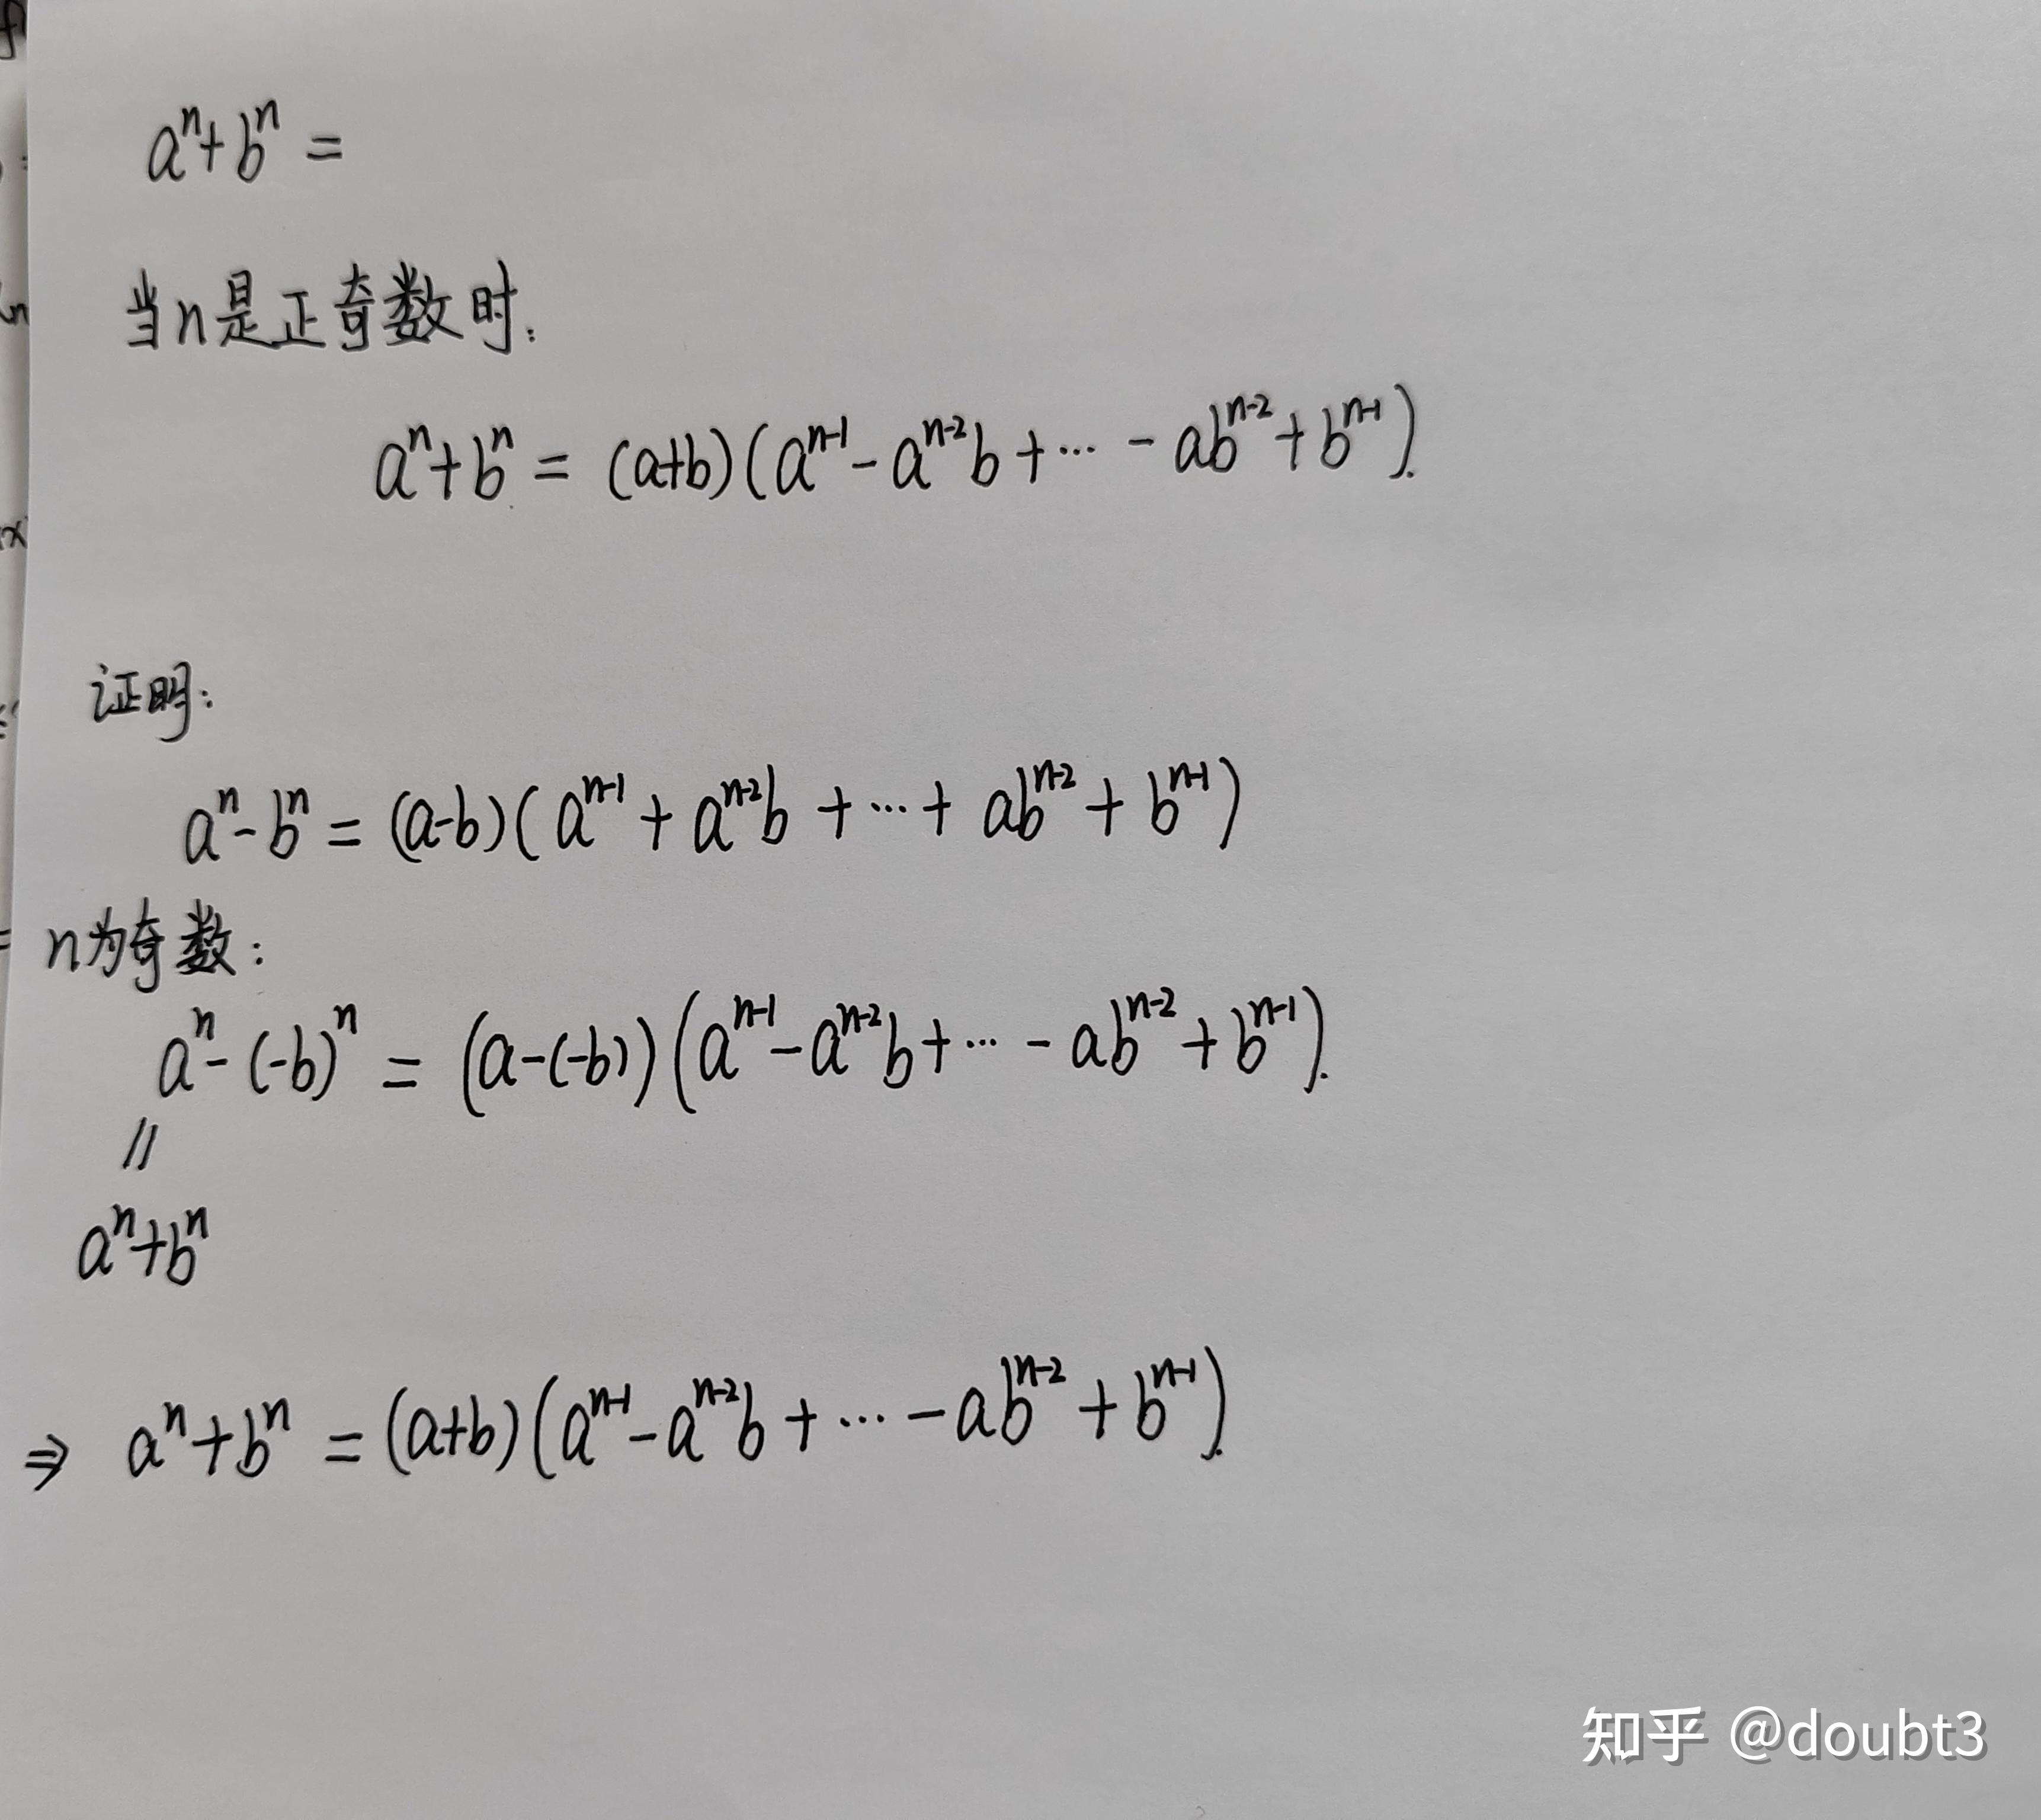 aⁿ+bⁿ =
当n是正奇数时:
aⁿ+bⁿ = (a+b)(aⁿ⁻¹-aⁿ⁻²b+⋯-abⁿ⁻²+bⁿ⁻¹).
证明:
aⁿ-bⁿ = (a-b)(aⁿ⁻¹+aⁿ⁻²b+⋯+abⁿ⁻²+bⁿ⁻¹)
n为奇数:
aⁿ-(-b)ⁿ = (a-(-b))(aⁿ⁻¹-aⁿ⁻²b+⋯-abⁿ⁻²+bⁿ⁻¹).
||
aⁿ+bⁿ
⇒ aⁿ+bⁿ = (a+b)(aⁿ⁻¹-aⁿ⁻²b+⋯-abⁿ⁻²+bⁿ⁻¹).
知乎 @doubt3